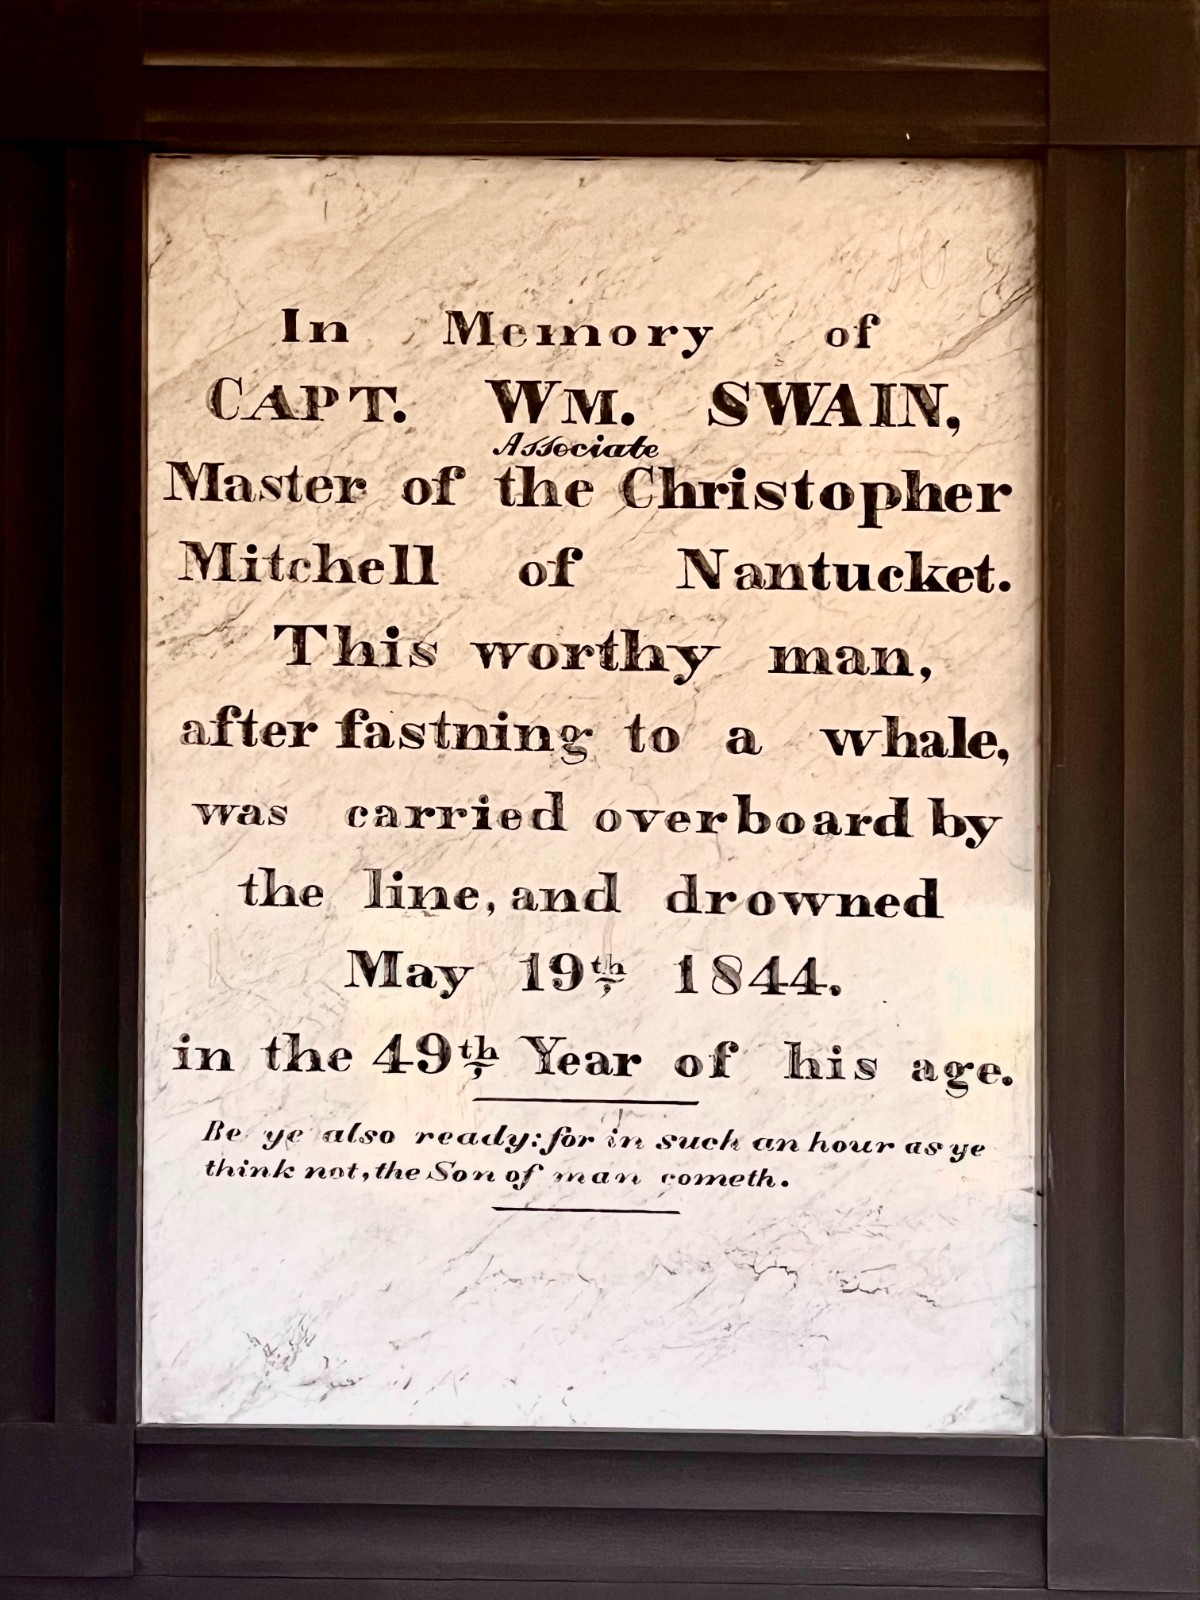 In Memory of
CAPT. WM. SWAIN,
Associate
Master of the Christopher
Mitchell of Nantucket.
This worthy man,
after fastning to a whale,
was carried overboard by
the line, and drowned
May 19th, 1844.
in the 49th, Year of his age.
Be ye also ready: for in such an hour as ye
think not, the Son of man cometh.